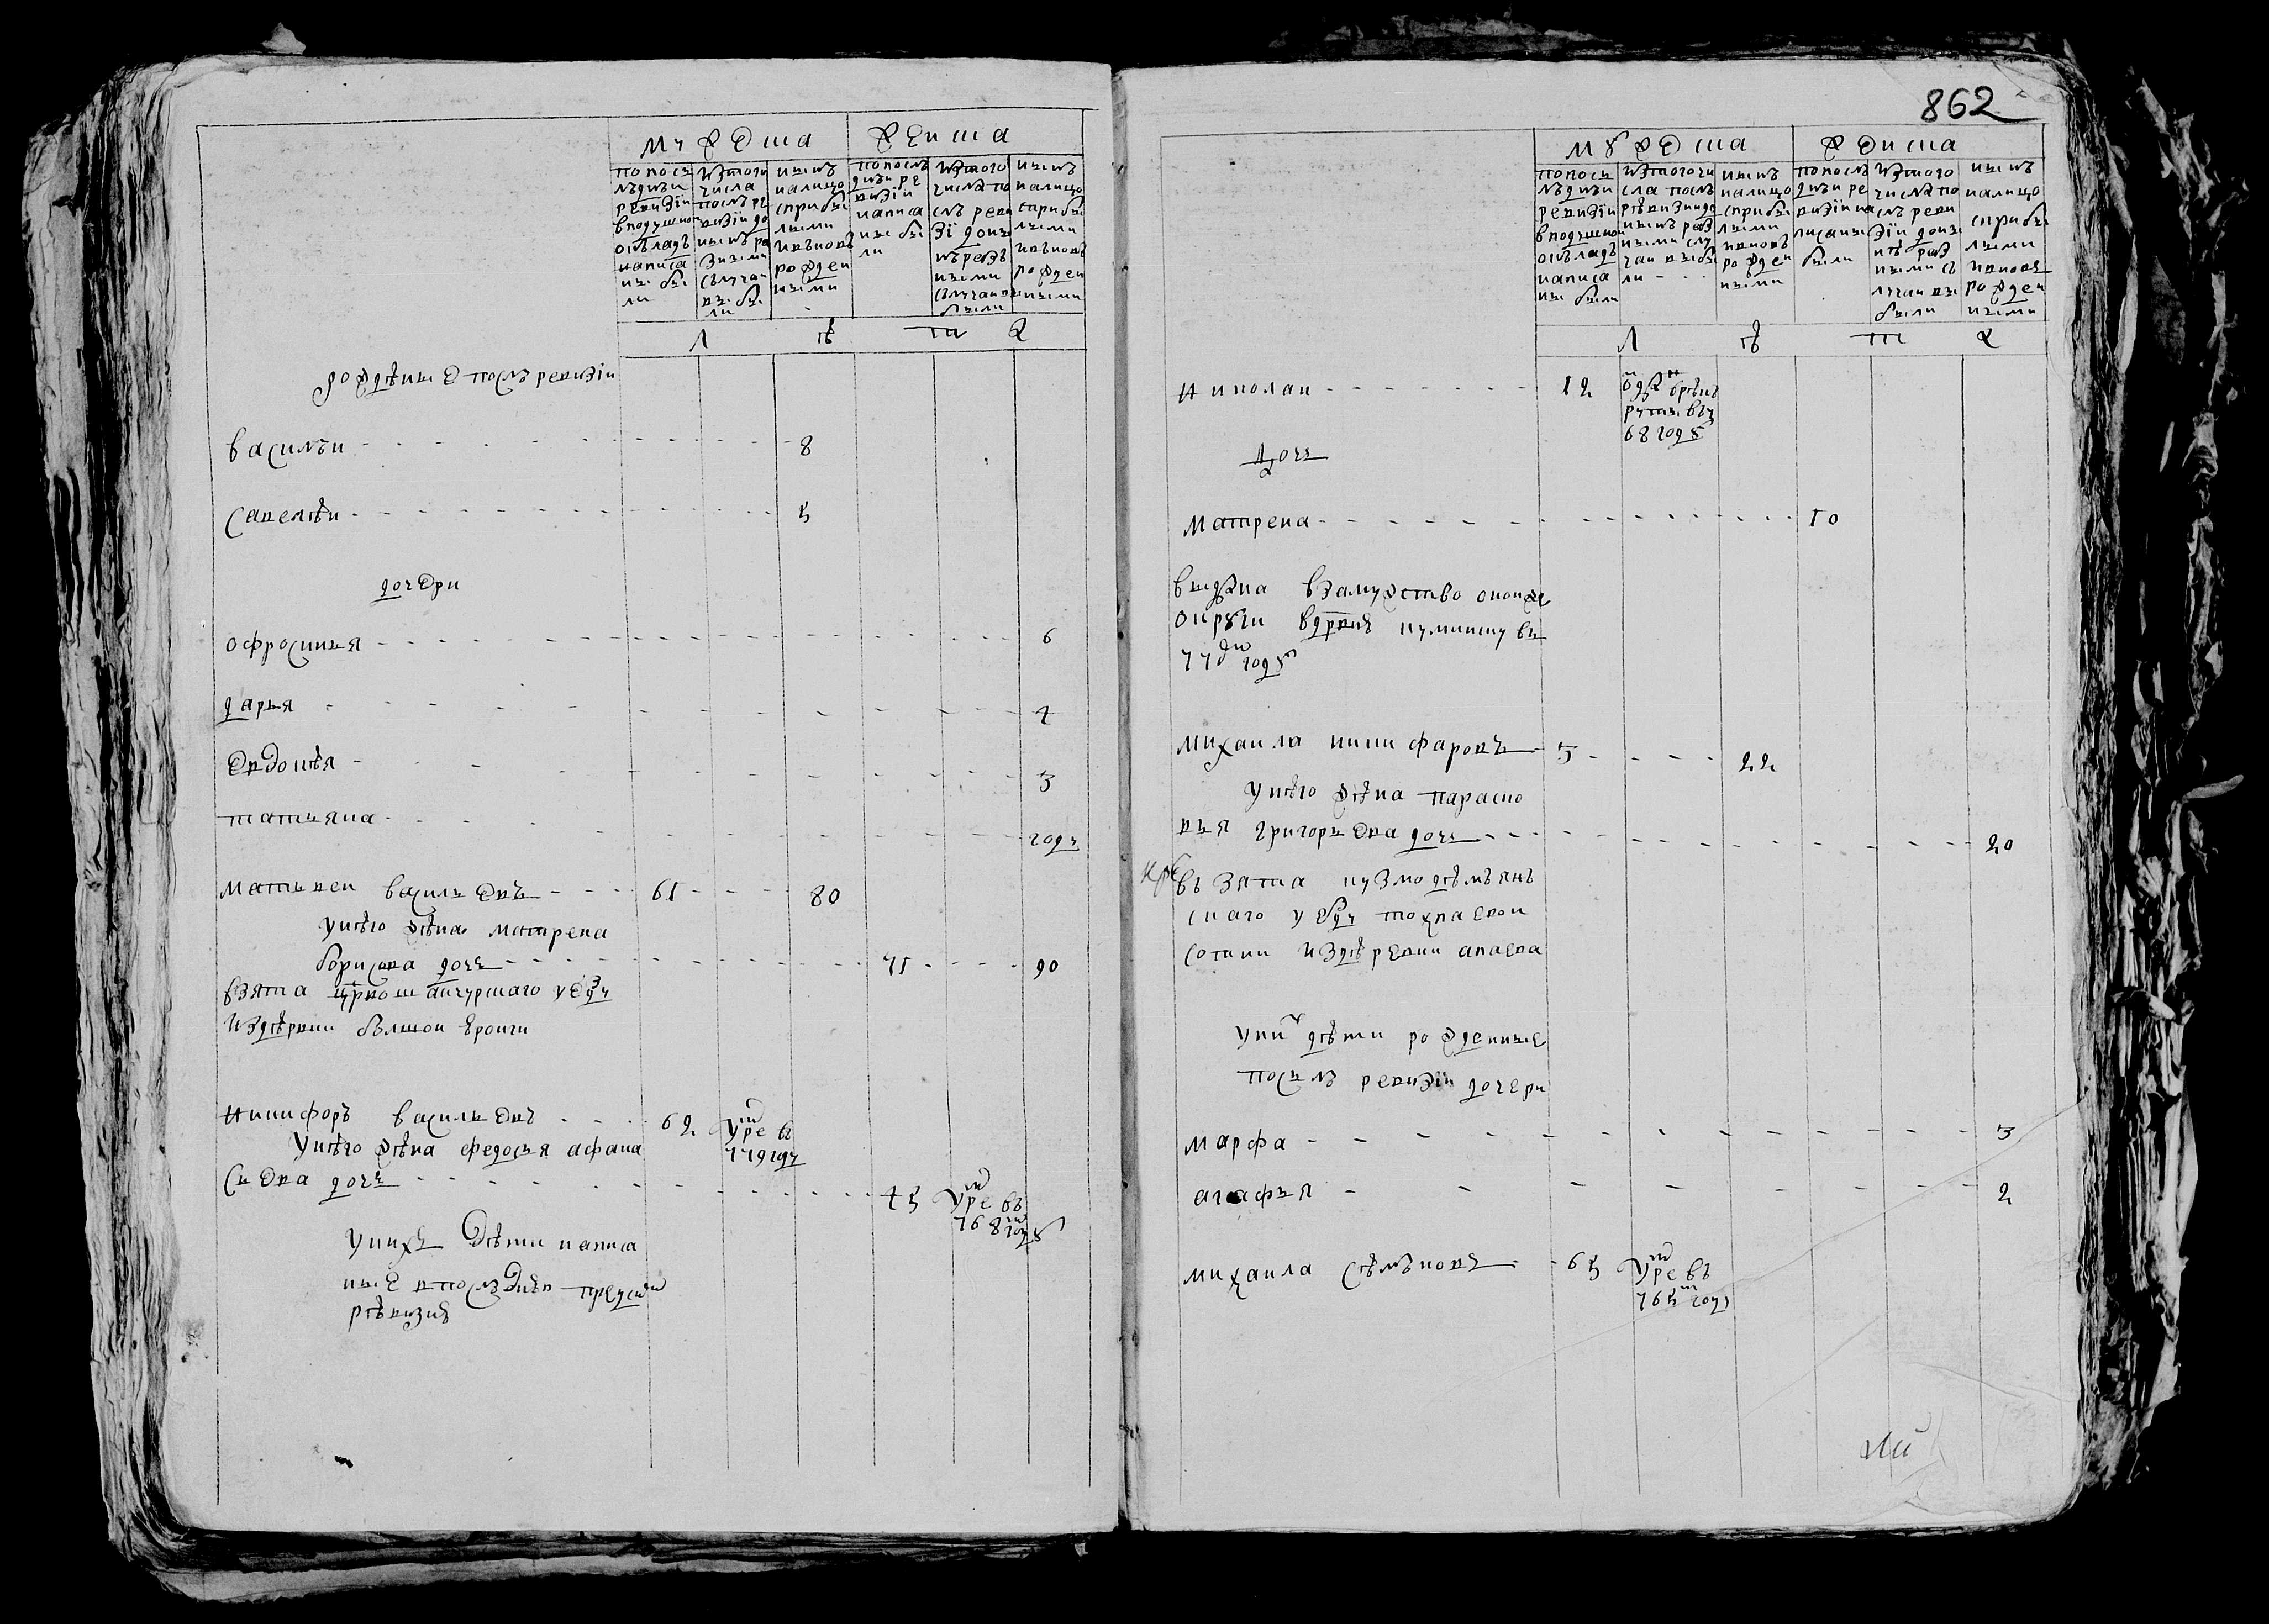 мужеска
женска
по послѣдней ревизіи в подушной окладъ написаны были
из того числа послѣ ревизіи до нынѣ разными случаи выбыли
ныне на лицо с прибылыми и вновь рожденными
по послѣдней ревизіи написаны были
из того числа послѣ ревизіи до нынѣ разными случаи выбыли
ныне на лицо с прибылыми и вновь рожденными
л ѣ т а
рожденные послѣ ревизіи
василѣи 8
савелѣи 5
дочери
офросинья 6
дарья 4
евдокѣя 3
татьяна году
матвеи васильевъ 61 80
у него жена матрена
борисова дочь 71 90
взята царевошанчурскаго уезду
из деревни болшои
никифоръ васильевъ 62 умре въ 779 году
у него жена федосья афана
сьева дочь 45 умре въ 768 году
у нихъ дѣти написа
ные в последнеи пред сим
ревизия
862
мужеска
женска
по послѣдней ревизіи в подушной окладъ написаны были
из того числа послѣ ревизии до нынѣ разными случаи выбыли
ныне на лицо с прибылыми и вновь рожденными
по послѣдней ревизіи написаны были
из того числа послѣ ревизіи до нынѣ разными случаи выбыли
ныне на лицо с прибылыми и вновь рожденными
л ѣ т а
николаи 12 отдан в рекруты въ 768 году
дочь
матрена 10
выдана в замужство оной же
округи в деревню кумишу въ
77 году
михаила никифаровъ 5 22
у него жена параско
вья григорьева дочь 20
взята кузмодемьян
скаго уезду
сотни из деревни апаева
у них дети рожденные
после ревизіи дочери
марфа 3
агафья 2
михаила семеновъ 65 умре въ
765 году